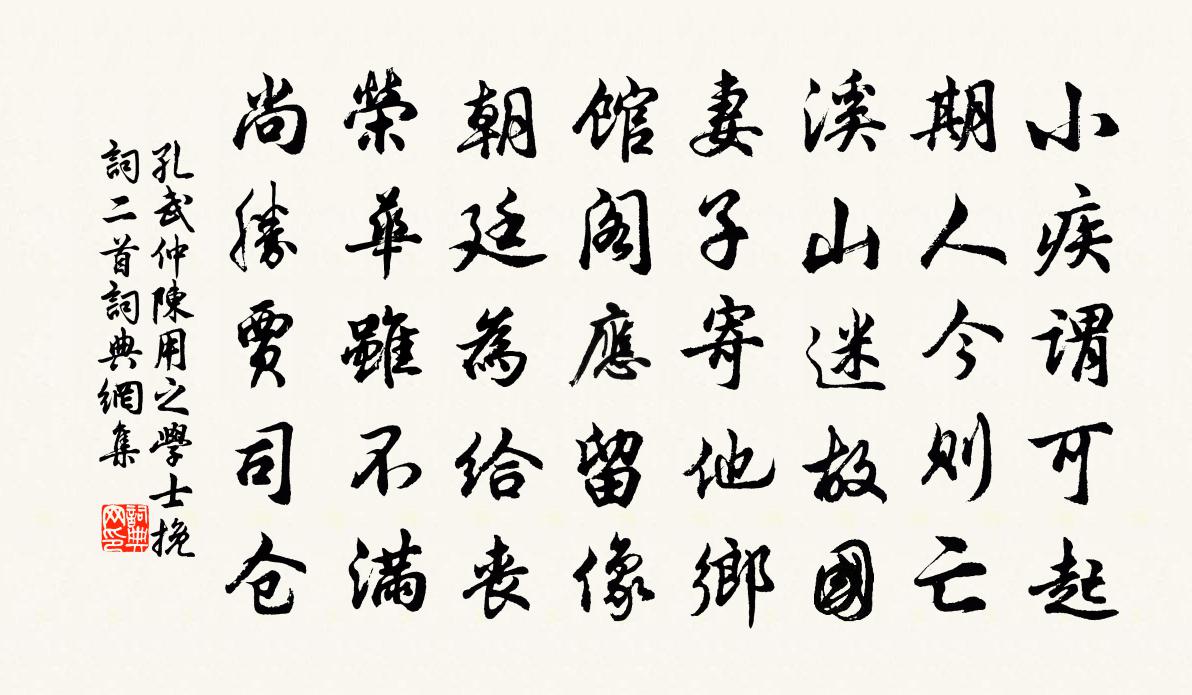 小疾谓可起
期人今则亡
溪山迷故國
妻子寄他鄉
馆阁應留像
朝廷為给丧
榮華雖不满
尚勝賈司仓
孔武仲陳用之學士挽
詞二首詞典網集
詞典
网印